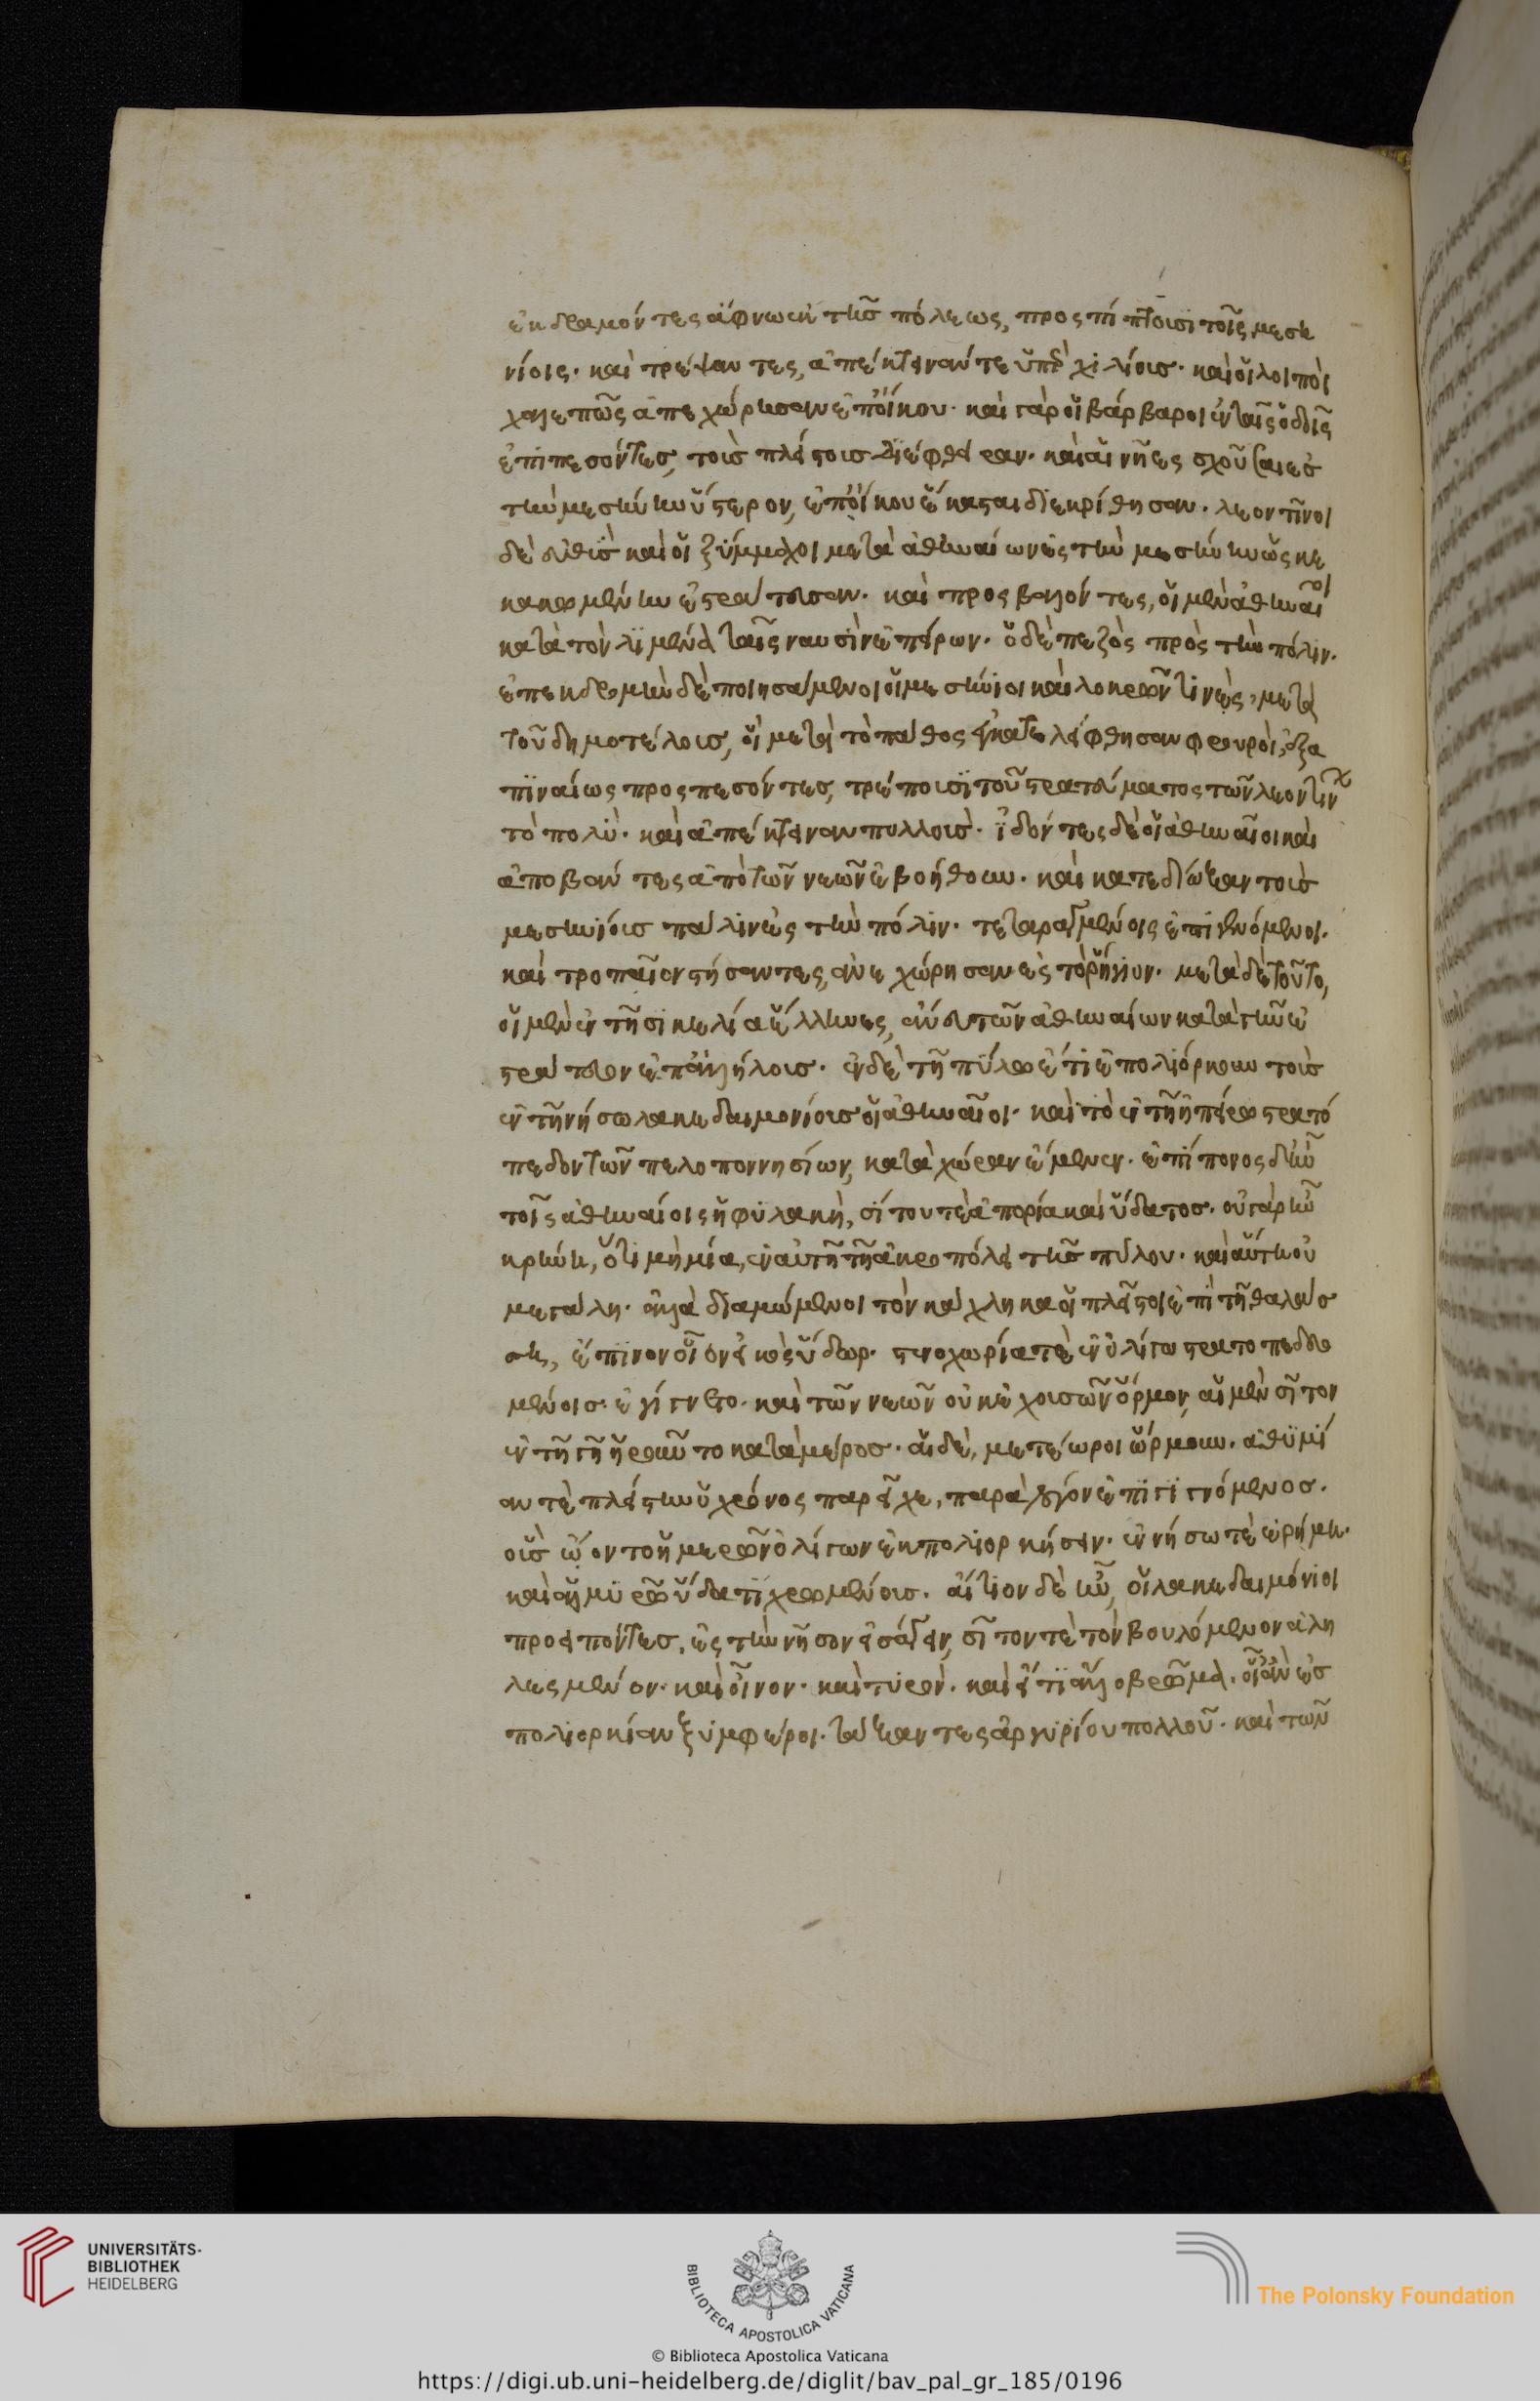 ἐκδραμόντες ἄφνω ἐκ τῆς πόλεως, προσπίπτουσι τοῖς μεση
νίοις· καὶ τρέψαντες, ἀπέκτειναν τε ὑπὲρ χιλίους· καὶ οἱ λοιποὶ
χαλεπῶς ἀπεχώρησαν ἐπ' οἴκου· καὶ γὰρ οἱ βάρβαροι ἐν ταῖς ὁδοῖς
ἐπιπεσόντες, τοὺς πλείστους διέφθειραν· καὶ αἱ νῆες σχοῦσαι ἐς
τὴν μεσήνην ὕστερον, ἐπ' οἴκου ἕκασται διεκρίθησαν· λεοντῖνοι
δὲ εὐθὺς καὶ οἱ ξύμμαχοι μετὰ ἀθηναίων ἐς τὴν μεσήνην ὡς κε
κακωμένην ἐστράτευσαν· καὶ προσβαλόντες, οἱ μὲν ἀθηναῖοι
κατὰ τὸν λιμένα ταῖς ναυσὶν ἐπείρων· ὁ δὲ πεζὸς πρὸς τὴν πόλιν·
ἐπεκδρομὴν δὲ ποιησάμενοι οἱ μεσήνιοι καὶ λοκρῶν τινὲς, μετὰ
τοῦ δημοτέλους, οἳ μετὰ τὸ πάθος ἐγκατελείφθησαν φρουροὶ, ἐξα
πιναίως προσπεσόντες, τρέπουσι τοῦ στρατεύματος τῶν λεοντίνων
τὸ πολὺ· καὶ ἀπέκτειναν πολλοὺς· ἰδόντες δὲ οἱ ἀθηναῖοι καὶ
ἀποβάντες ἀπὸ τῶν νεῶν ἐβοήθουν· καὶ κατεδίωξαν τοὺς
μεσηνίους πάλιν ἐς τὴν πόλιν· τεταραγμένοις ἐπιγενόμενοι·
καὶ τροπαῖον στήσαντες, ἀνεχώρησαν ἐς τὸ ῥήγιον· μετὰ δὲ τοῦτο,
οἱ μὲν ἐν τῇ σικελίᾳ ἕλληνες, ἄνευ τῶν ἀθηναίων κατὰ γῆν ἐ
στράτευον ἐπ' ἀλλήλους· ἐν δὲ τῇ πύλῳ ἔτι ἐπολιόρκουν τοὺς
ἐν τῇ νήσῳ λακεδαιμονίους οἱ ἀθηναῖοι· καὶ τὸ ἐν τῇ ἠπείρῳ στρατό
πεδον τῶν πελοποννησίων, κατὰ χώραν ἔμενεν· ἐπίπονος δ' ἦν
τοῖς ἀθηναίοις ἡ φυλακὴ, σίτου τὲ ἀπορίᾳ καὶ ὕδατος· οὐ γὰρ ἦν
κρήνη, ὅτι μὴ μία, ἐν αὐτῇ τῇ ἀκροπόλει τῆς πύλου· καὶ αὕτη οὐ
μεγάλη· ἀλλὰ διαμώμενοι τὸν κάχληκα οἱ πλεῖστοι ἐπὶ τῇ θαλάσ
σῃ, ἔπινον οἷον εἰκὸς ὕδωρ· στενοχωρία τὲ ἐν ὀλίγῳ στρατοπεδευο
μένοις ἐγίγνετο· καὶ τῶν νεῶν οὐκ ἐχουσῶν ὅρμον, αἱ μὲν σῖτον
ἐν τῇ γῇ ᾑροῦντο κατὰ μέρος· αἱ δὲ, μετέωροι ὥρμουν· ἀθυμί
αν τὲ πλείστην ὁ χρόνος παρεῖχε, παρὰ λόγον ἐπιγιγνόμενος·
οὓς ᾤοντο ἡμερῶν ὀλίγων ἐκπολιορκήσειν· ἐν νήσῳ τὲ ἐρήμῃ·
καὶ ἁλμυρῷ ὕδατι χρωμένους· αἴτιον δὲ ἦν, οἱ λακεδαιμόνιοι
προειπόντες, ἐς τὴν νῆσον ἐσάγειν, σῖτον τὲ τὸν βουλόμενον ἀλη
λεσμένον· καὶ οἶνον· καὶ τυρὸν· καὶ εἴ τι ἄλλο βρῶμα· οἷ' ἂν ἐς
πολιορκίαν ξυμφέροι· τάξαντες ἀργυρίου πολλοῦ· καὶ τῶν
UNIVERSITÄTS-
BIBLIOTHEK
HEIDELBERG
BIBLIOTECA APOSTOLICA VATICANA
The Polonsky Foundation
© Biblioteca Apostolica Vaticana
https://digi.ub.uni-heidelberg.de/diglit/bav_pal_gr_185/0196